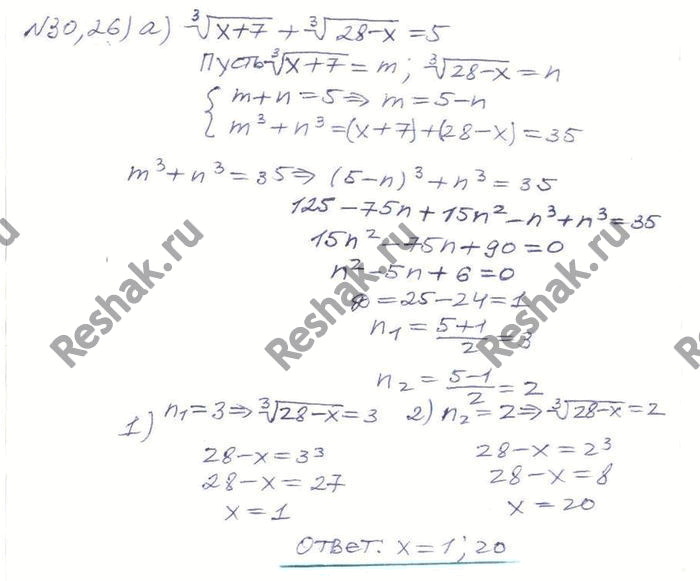 N30,26) а) ∛(x+7) + ∛(28-x) = 5
Пусть ∛(x+7) = m; ∛(28-x) = n
{ m+n=5 ⇒ m=5-n
{ m³+n³=(x+7)+(28-x)=35
m³+n³=35 ⇒ (5-n)³+n³=35
125-75n+15n²-n³+n³=35
15n²-75n+90=0
n²-5n+6=0
D=25-24=1
n₁=(5+1)/2=3
n₂=(5-1)/2=2
1) n₁=3 ⇒ ∛(28-x)=3 2) n₂=2 ⇒ ∛(28-x)=2
28-x=3³ 28-x=2³
28-x=27 28-x=8
x=1 x=20
Ответ: x=1; 20
Reshak.ru
Reshak.ru
Reshak.ru